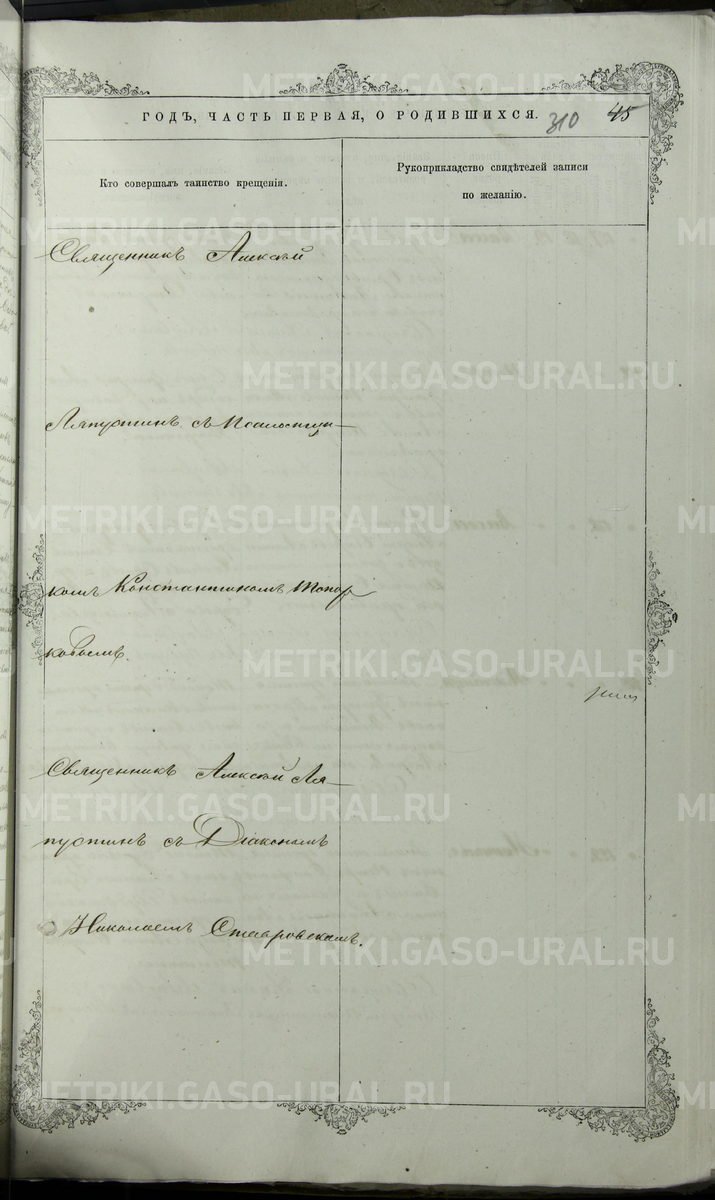 ГОДЪ, ЧАСТЬ ПЕРВАЯ, О РОДИВШИХСЯ.
310 45
Кто совершалъ таинство крещенія.
Рукоприкладство свидѣтелей записи
по желанію.
Священникъ Алексѣй
Ляпустинъ съ Псаломщи-
комъ Константиномъ Топор
ковымъ.
Священникъ Алексѣй Ля-
пустинъ съ Діакономъ
Николаемъ Ставровскимъ.
METRIKI.GASO-URAL.RU